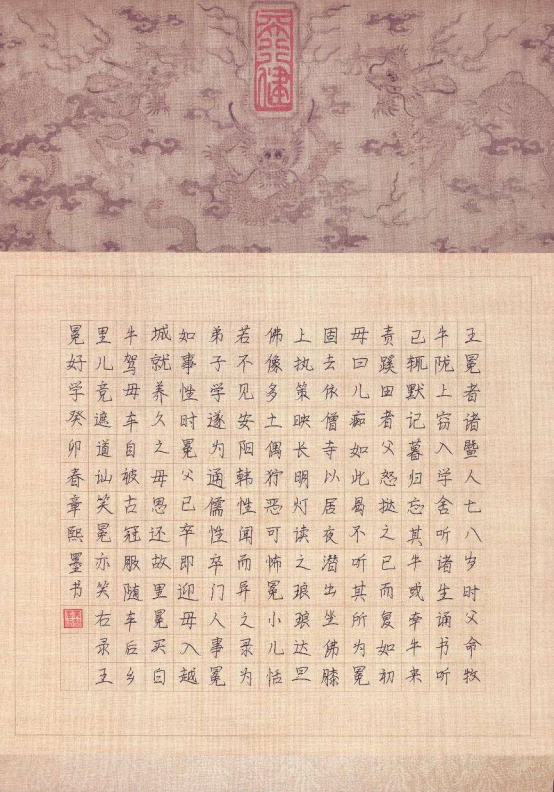 天行健
王冕者诸暨人七八岁时父命牧
牛陇上窃入学舍听诸生诵书听
已辄默记暮归忘其牛或牵牛来
责蹊田者父怒挞之已而复如初
母曰儿痴如此曷不听其所为冕
因去依僧寺以居夜潜出坐佛膝
上执策映长明灯读之琅琅达旦
佛像多土偶狞恶可怖冕小儿恬
若不见安阳韩性闻而异之录为
弟子学遂为通儒性卒门人事冕
如事性时冕父已卒即迎母入越
城就养久之母思还故里冕买白
牛驾母车自被古冠服随车后乡
里儿竞遮道讪笑冕亦笑右录王
冕好学癸卯春章熙墨书